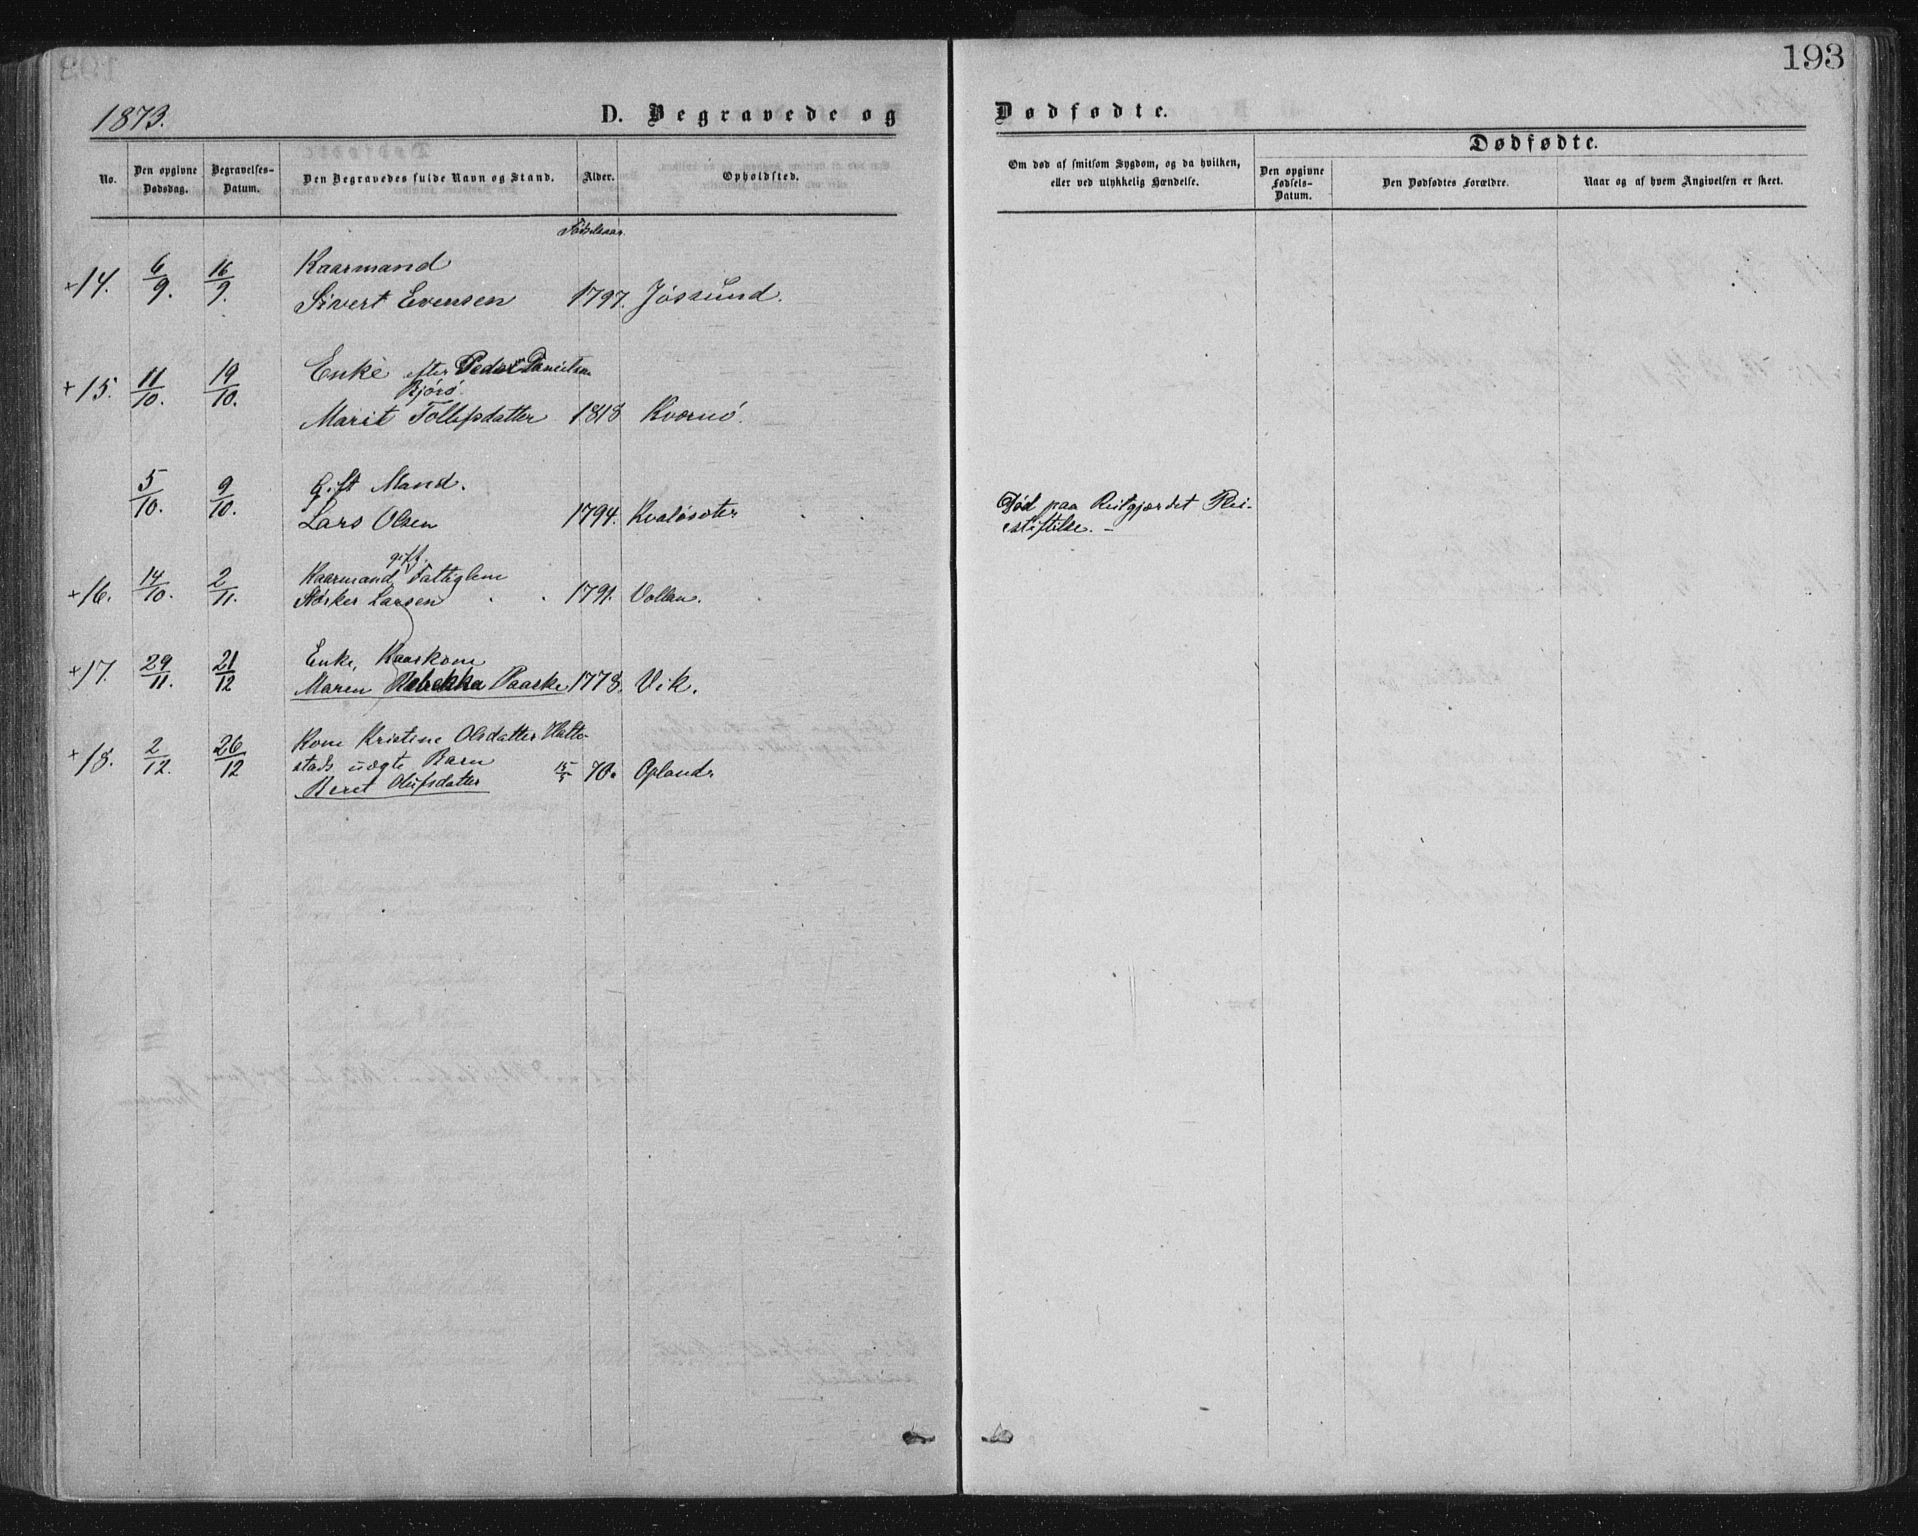 193
1873.
D. Begravede og Dødfødte.
Dødfødte.
No.
Den opgivne Dødsdag.
Begravelses-Datum.
Den Begravedes fulde Navn og Stand.
Alder.
Opholdsted.
Om død af smitsom Sygdom, og da hvilken, eller ved ulykkelig Hændelse.
Den opgivne Fødsels-Datum.
Den Dødfødtes Forældre.
Naar og af hvem Angivelsen er skeet.
Fødselsaar.
Kaarmand
+14. 6/9. 16/9. Sivert Evensen 1797. Jøssund.
Enke efter Peder Danielsen
Bjørø
+15. 11/10. 19/10. Marit Tollefsdatter 1818 Kvernø.
Gift Mand.
5/10. 9/10. Lars Olsen 1794. Kvaløsæter
Død paa Reitgjærdet Plei-
estiftelse. –
gift.
Kaarmand, Fattiglem
+16. 14/10. 2/11. Størker Larsen 1791. Vollan.
Enke, Kaarkone
+17. 29/11. 21/12 Maren Rebekka Paaske 1773. Vik.
Kone Kristine Olsdatter Halte-
stads uægte Barn
+18. 2/12. 26/12 Beret Olufsdatter 15/5 70. Opland.